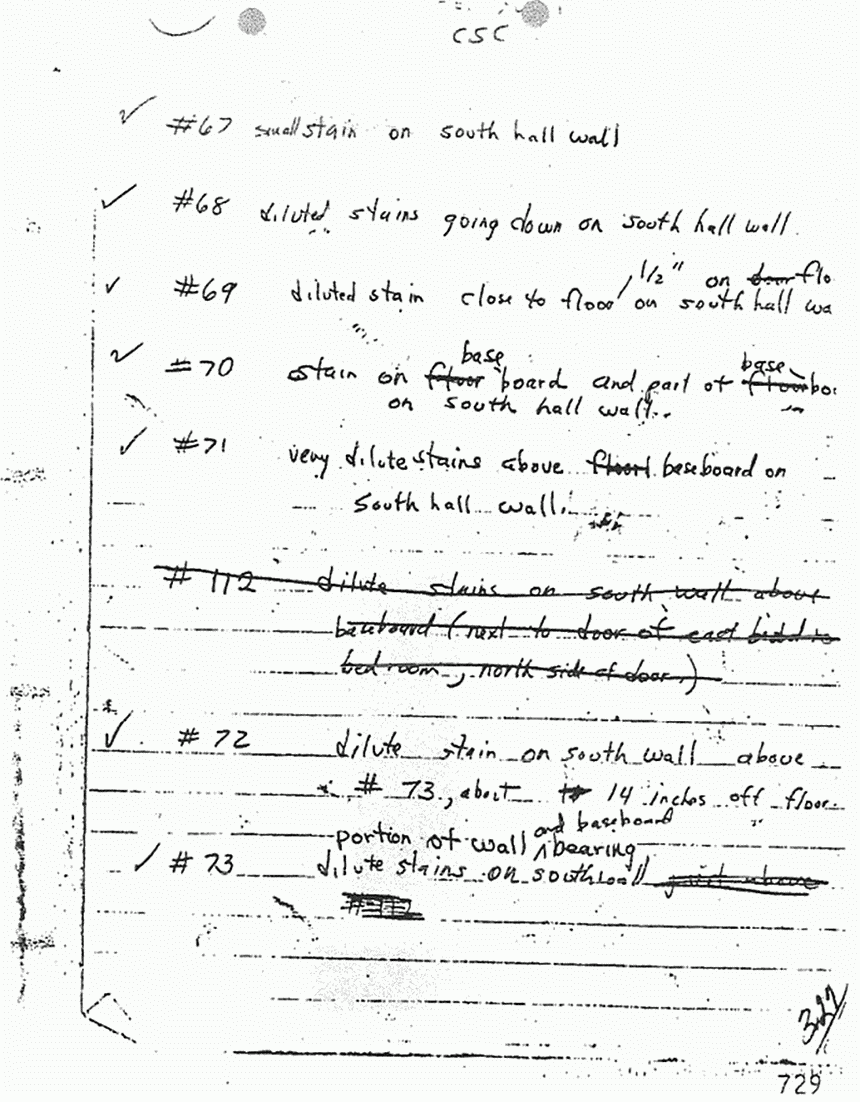 CSC
✓ #67 small stain on south hall wall
✓ #68 diluted stains going down on south hall wall.
1/2" on door flo
✓ #69 diluted stain close to floor, on south hall wa
base base
✓ #70 stain on floor board and part of floor bo
on south hall wall.
✓ #71 very dilute stains above floor baseboard on
South hall wall.
# 112 dilute stains on south wall above
baseboard (next to door of east
bedroom, north side of door.)
✓ # 72 dilute stain on south wall above
# 73, about 14 inches off floor.
and baseboard
portion of wall ^ bearing
✓ # 73 dilute stains on south wall just above
327
729